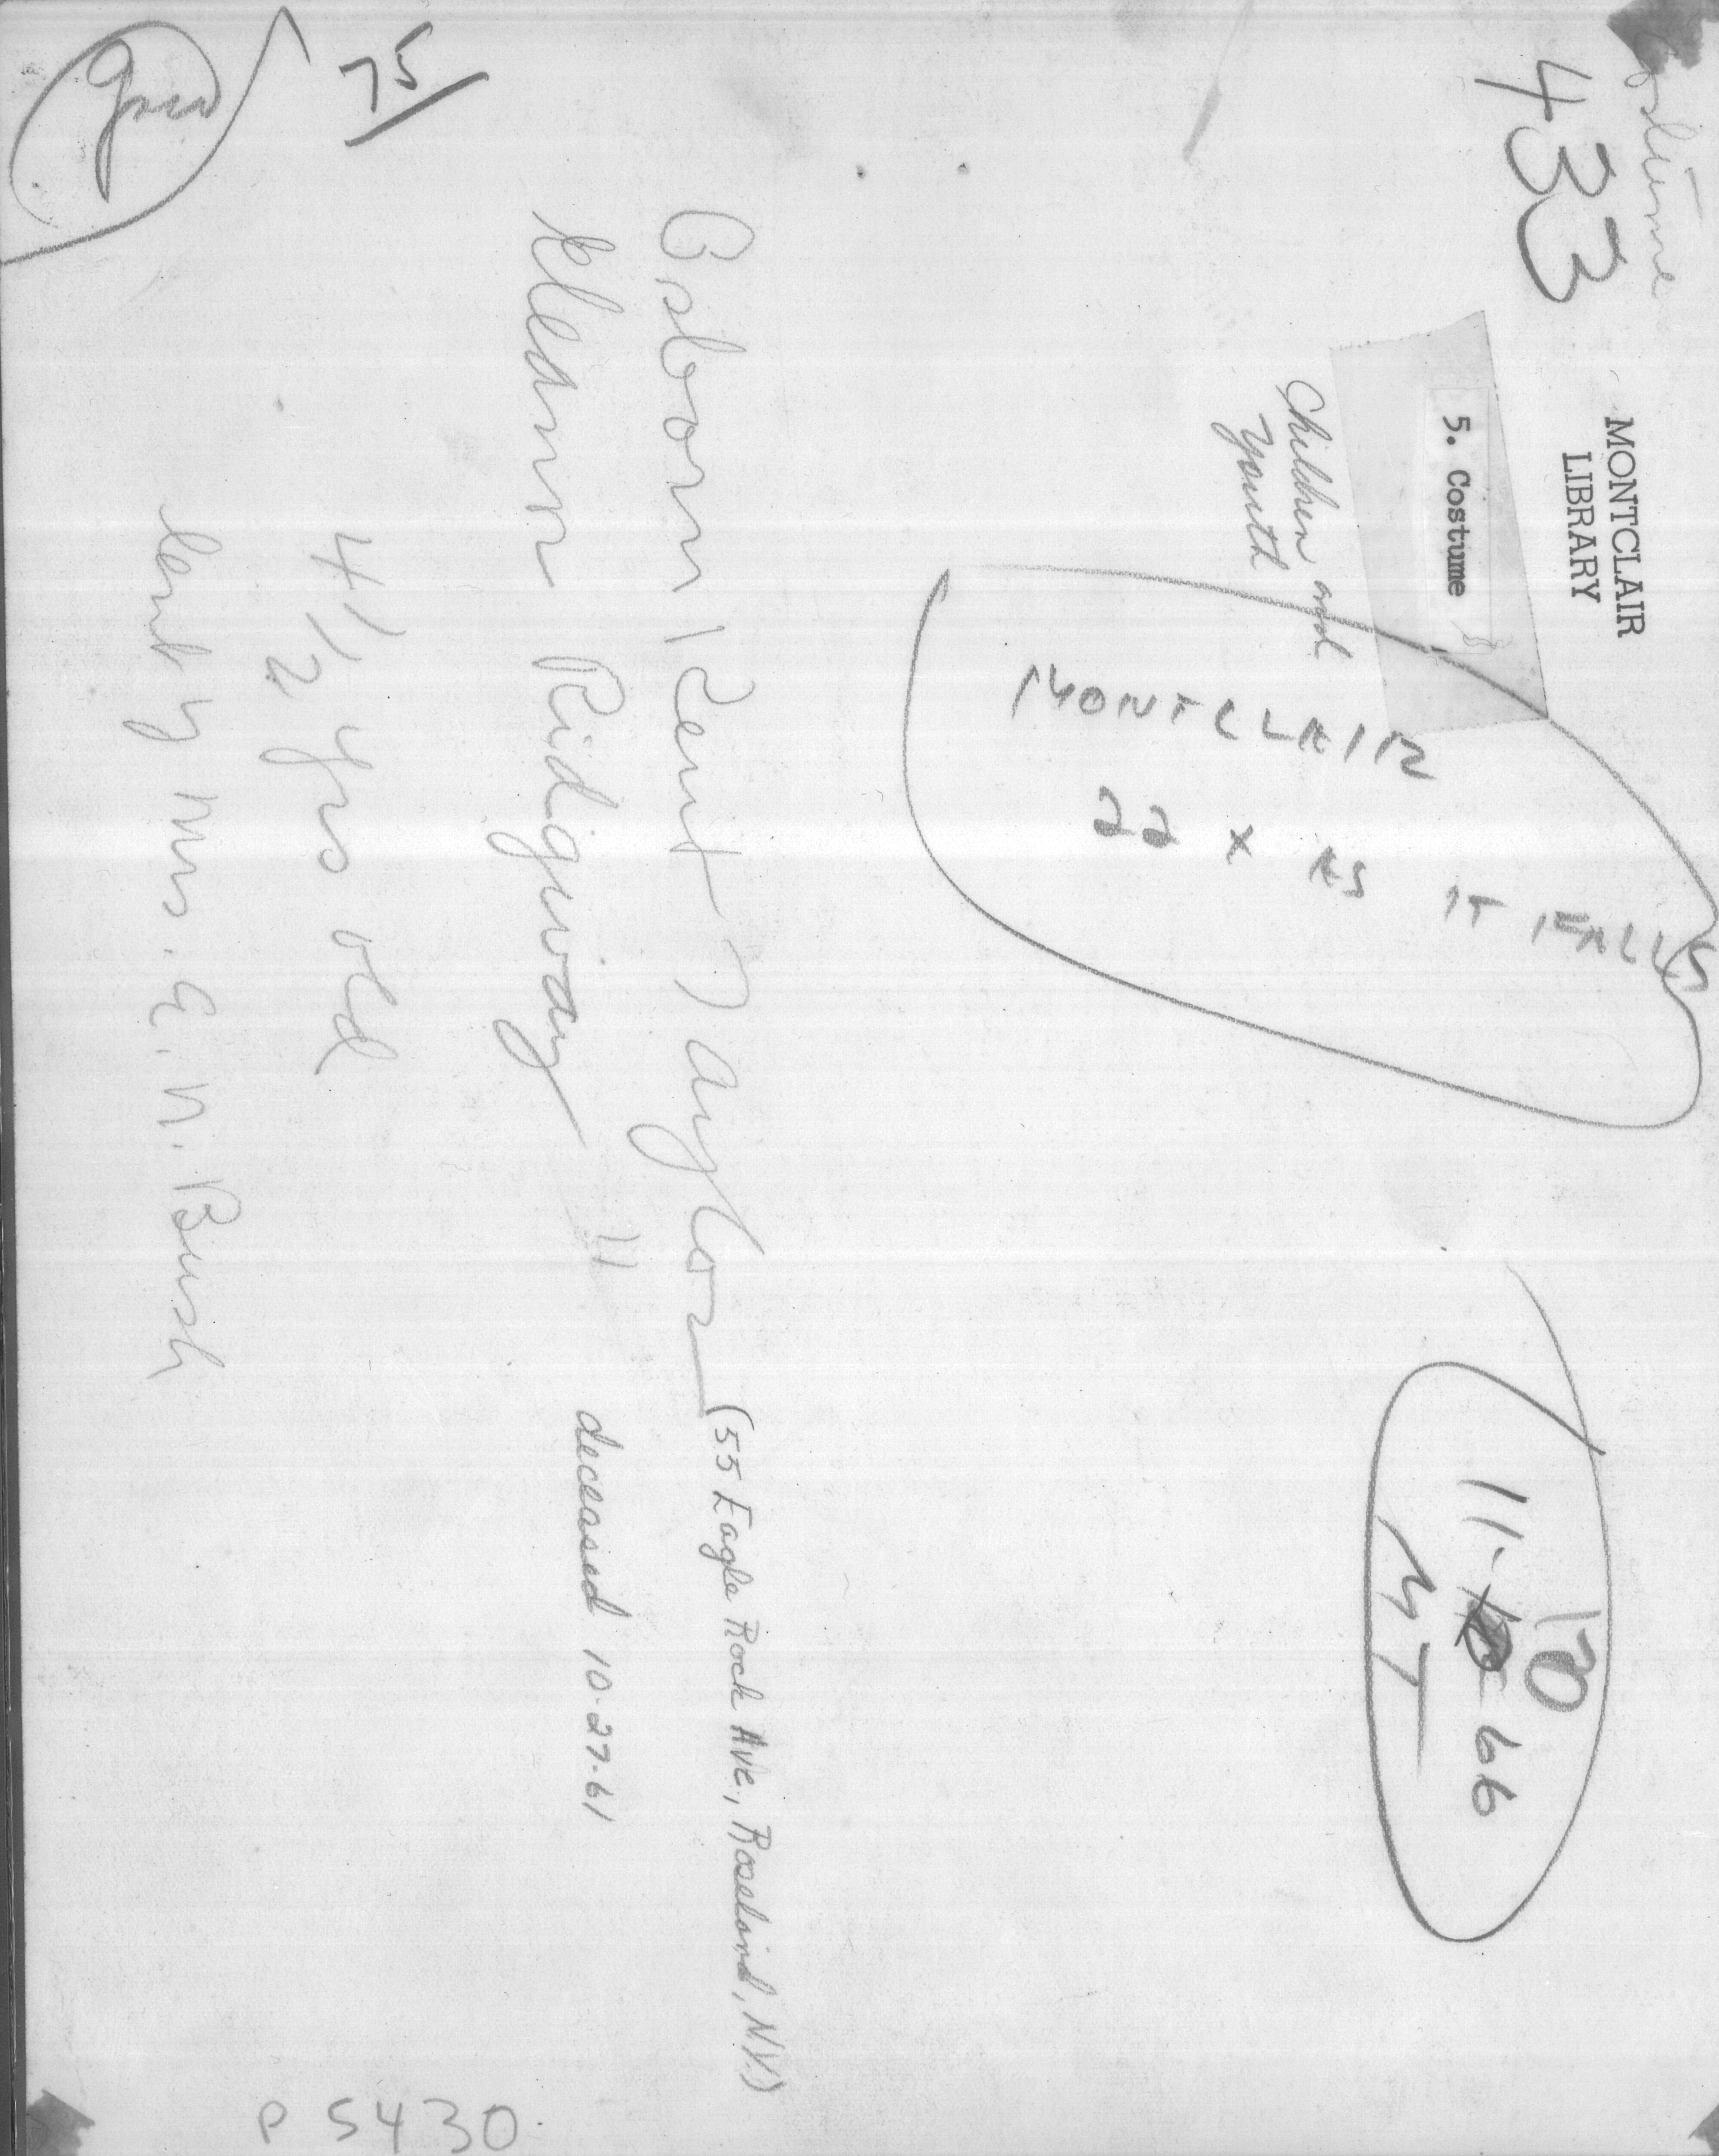 Costume
433
MONTCLAIR
LIBRARY
5. Costume
Children and
Youth
MONTCLAIR
22 X AS IT FALLS
10
11-10-66
MT
Osborn Kent Taylor (55 Eagle Rock Ave., Roseland, N.Y.)
Eleanor Ridgway " deceased 10-27-61
4 1/2 yrs old
lent by Mrs. A. N. Bush
P 5430